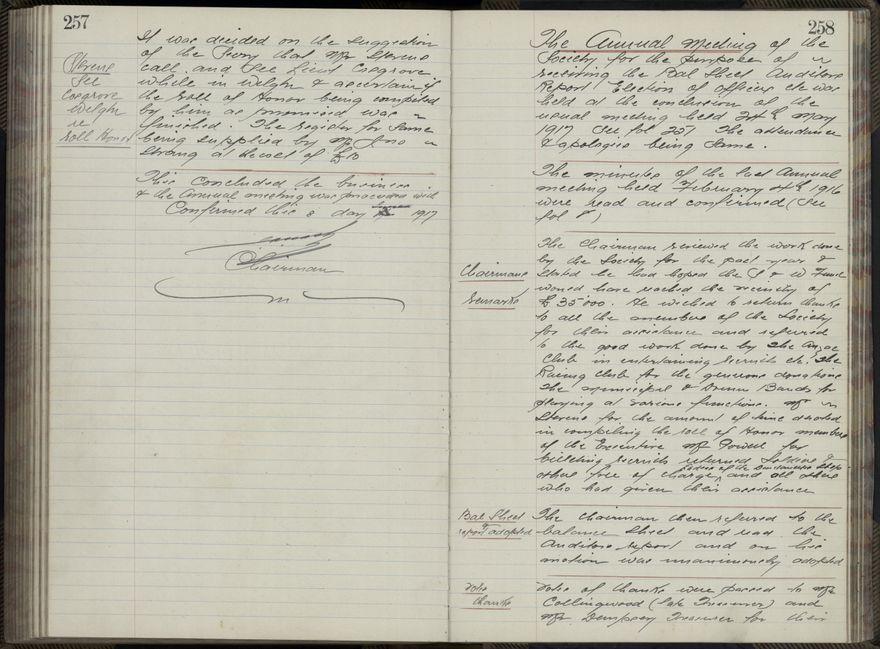 257
Sterens
see
Cosgrove
Welgtn
re
Roll Honor
It was decided on the suggestion
of the Secy that Mr Sterens
call and see Lieut Cosgrove
while in Welgtn & ascertain if
the Roll of Honor being completed
by him as promised was
finished. The register for same
being supplied by Mr Jno
Strang at the cost of £10
This concluded the business
& the Annual meeting was proceeded with
Confirmed this 8 day 1917
Chairman
258
The Annual Meeting of the
Society for the purpose of
receiving the Bal Sheet Auditors
Report Election of officers etc was
held at the conclusion of the
usual meeting held 24th May
1917 see fol 257 The attendance
& apologies being same.
The minutes of the last Annual
meeting held February 4th 1916
were read and confirmed (See
fol )
Chairmans
Remarks
The Chairman reviewed the work done
by the Society for the past year &
stated he had hoped the S & W Fund
would have reached the vicinity of
£35000. He wished to return thanks
to all the members of the Society
for their assistance and referred
to the good work done by the Anzac
Club in entertaining recruits etc. The
Racing Club for the generous donations
The Municipal & Drum Bands for
playing at various functions. Mr
Sterens for the amount of time devoted
in compiling the roll of Honor members
of the Executive Mr Powell for
billeting recruits returned Soldiers &
others free of charge, and all others
Ladies of the
who had given their assistance
Bal Sheet
& report adopted
The Chairman then referred to the
balance sheet and read the
Auditors report and on his
motion was unanimously adopted
Votes
thanks
Votes of thanks were passed to Mr
Collingwood (late Treasurer) and
Mr Dempsey Treasurer for their